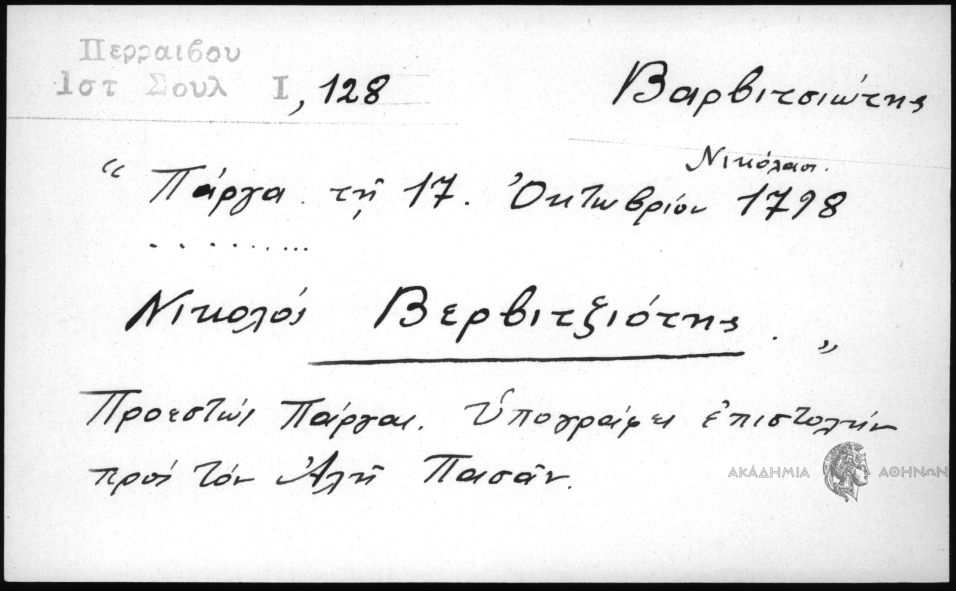 Περραιβου
Ιστ Σουλ Ι, 128
Βαρβιτσιώτης
Νικόλαος.
“ Πάργα τῇ 17. Ὀκτωβρίου 1798
. . . . . . . . .
Νικολός Βερβιτζιότης . „
Προεστώς Πάργας. Ὑπογράφει ἐπιστολήν
πρός τόν Ἀλῆ Πασᾶν.
ΑΚΑΔΗΜΙΑ ΑΘΗΝΩΝ